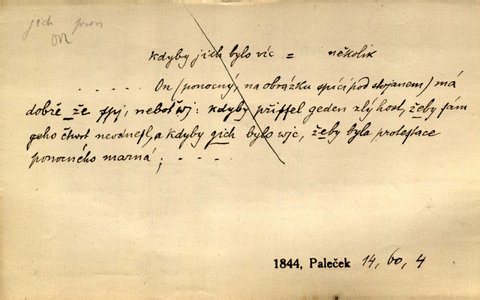 jich
kdyby jich bylo víc = několik
. . . . . On (ponocný, na obrázku spící pod stojanem) má
dobře že spj, nebo wj: kdyby přissel geden zlý host, žeby sám
geho čtwrt neodnesl, a kdyby gich bylo wjc, žeby byla protestace
ponocného marná; . . . .
1844, Paleček 14, 60, 4